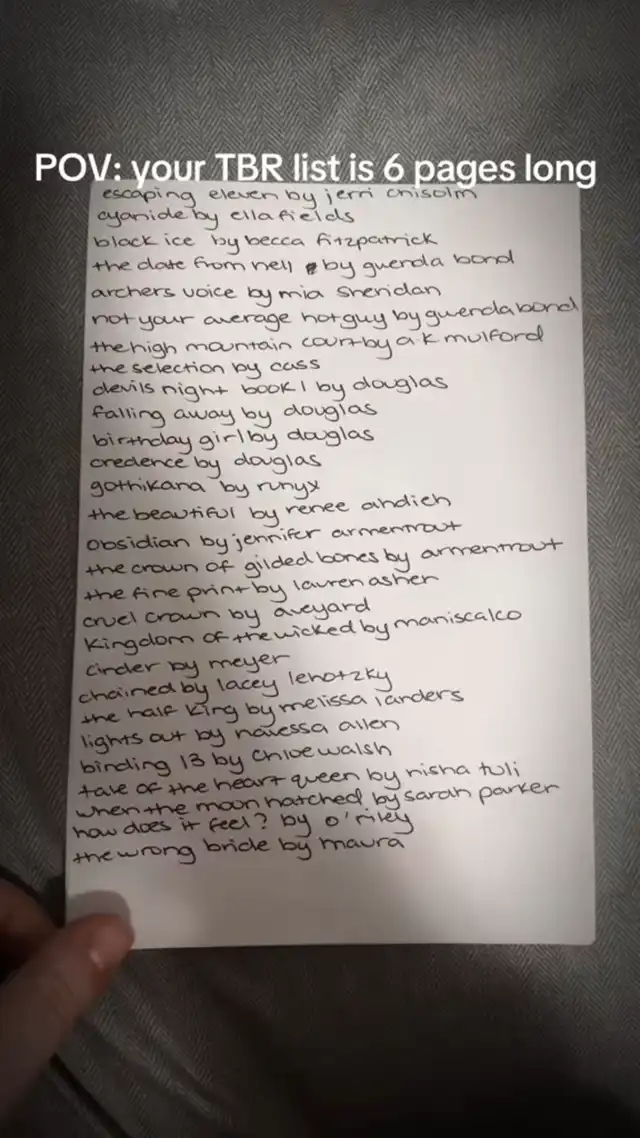 POV: your TBR list is 6 pages long
escaping eleven by jerri chisolm
cyanide by ella fields
black ice by becca fitzpatrick
the date from hell by guenda bond
archers voice by mia sheridan
not your average hot guy by gwenda bond
the high mountain court by a.k mulford
the selection by cass
devils night book 1 by douglas
falling away by douglas
birthday girl by douglas
credence by douglas
gothikana by runyx
the beautiful by renee ahdieh
obsidian by jennifer armentrout
the crown of gilded bones by armentrout
the fine print by lauren asher
cruel crown by aveyard
kingdom of the wicked by maniscalco
cinder by meyer
chained by lacey lehotzky
the half king by melissa landers
lights out by navessa allen
binding 13 by chloe walsh
tale of the heart queen by nisha tuli
when the moon hatched by sarah parker
how does it feel? by o'riley
the wrong bride by maura